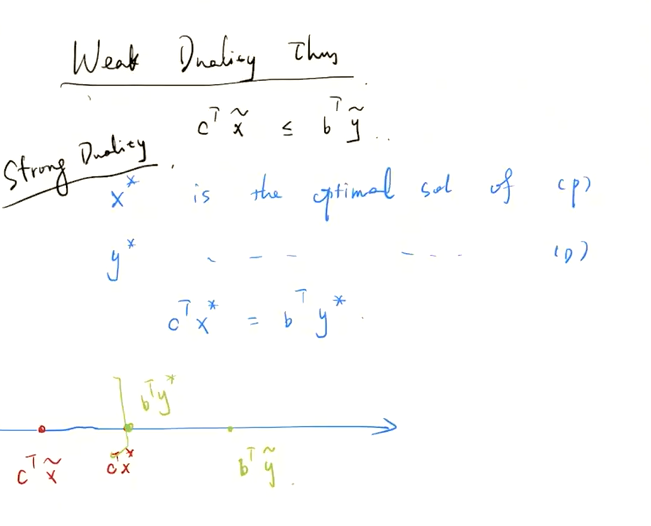 Weak Duality Thm
c^T x̃ ≤ b^T ỹ ..
Strong Duality.
x* is the optimal sol of (P)
y* . - - - - - . (D)
c^T x* = b^T y*.
b^T y*
c^T x̃ c^T x* b^T ỹ.